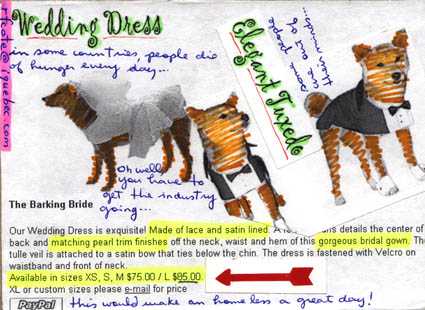 rfcote@iquebec.com
Wedding Dress
in some countries, people die
of hunger every day...
Elegant Tuxedo
some people
are out of
their minds...
Oh well
you have to
get the industry
going...
The Barking Bride
Our Wedding Dress is exquisite! Made of lace and satin lined. A details the center of
back and matching pearl trim finishes off the neck, waist and hem of this gorgeous bridal gown. The
tulle veil is attached to a satin bow that ties below the chin. The dress is fastened with Velcro on
waistband and front of neck.
Available in sizes XS, S, M $75.00 / L $85.00.
XL or custom sizes please e-mail for price
PayPal this would make an homeless a great day!